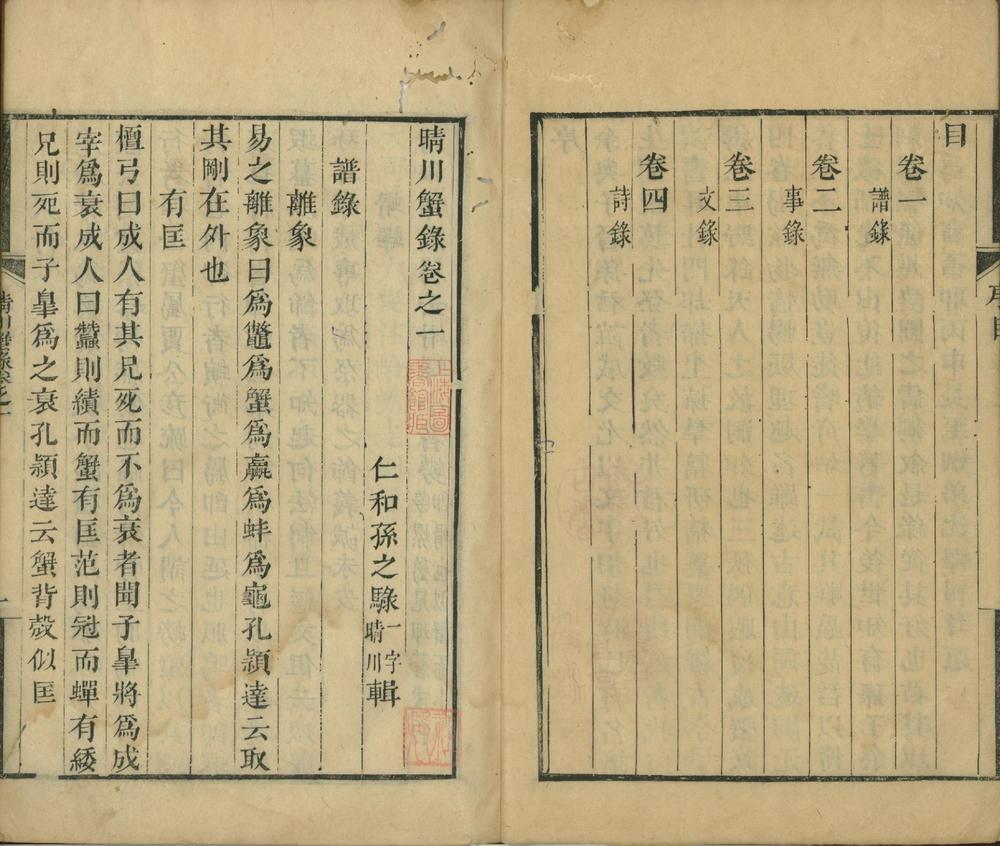 目
卷一
譜錄
卷二
事錄
卷三
文錄
卷四
詩錄
晴川蟹錄卷之一
仁和孫之騄一字晴川輯
譜錄
離象
易之離象曰爲鼈爲蟹爲蠃爲蚌爲龜孔頴達云取
其剛在外也
有匡
檀弓曰成人有其兄死而不爲衰者聞子臯將爲成
宰爲衰成人曰蠶則績而蟹有匡范則冠而蟬有緌
兄則死而子臯爲之衰孔頴達云蟹背殼似匡
晴川蟹錄卷之一